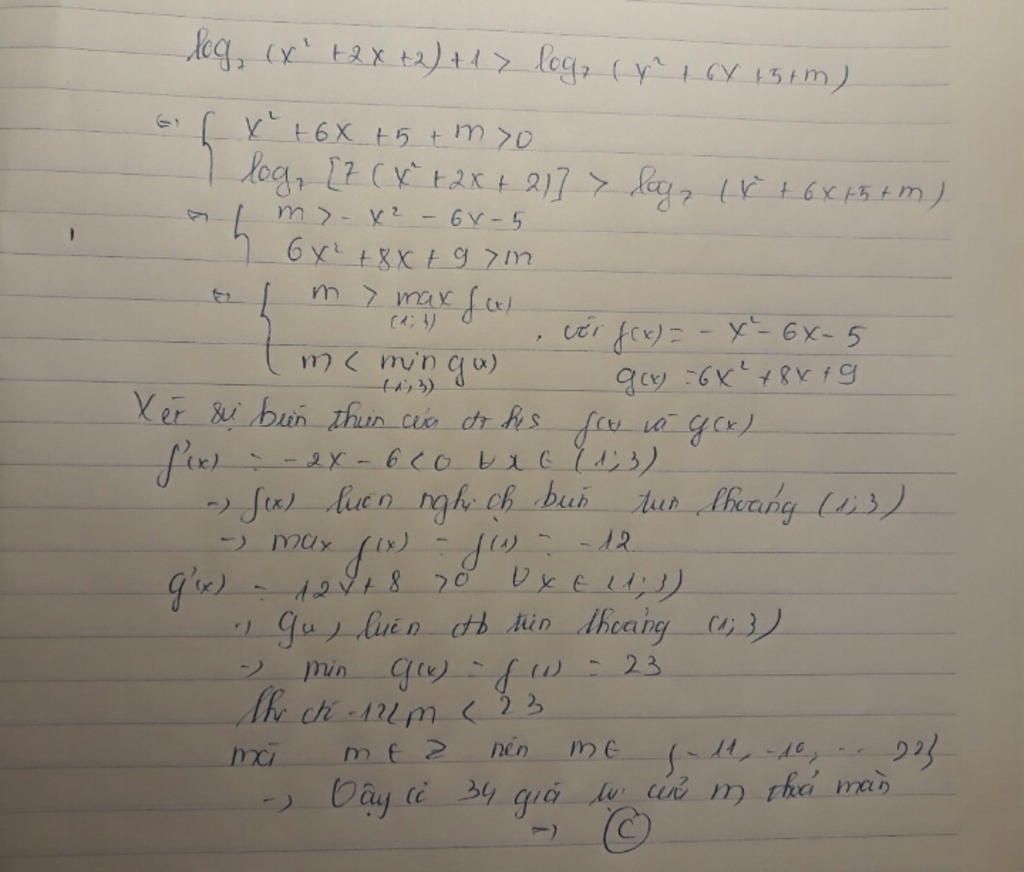 log₇ (x² + 2x + 2) + 1 > log₇ (x² + 6x + 5 + m)
⇔ { x² + 6x + 5 + m > 0
log₇ [7 (x² + 2x + 2)] > log₇ (x² + 6x + 5 + m)
⇔ { m > - x² - 6x - 5
6x² + 8x + 9 > m
⇔ { m > max f(x)
(1;3)
, với f(x) = - x² - 6x - 5
m < min g(x)
(1;3)
g(x) = 6x² + 8x + 9
Xét sự biến thiên của 2 h/s f(x) và g(x)
f'(x) = -2x - 6 < 0 ∀x ∈ (1;3)
→ f(x) luôn nghịch biến trên khoảng (1;3)
→ max f(x) = f(1) = -12
g'(x) = 12x + 8 > 0 ∀x ∈ (1;3)
→ g(x) luôn đb trên khoảng (1;3)
→ min g(x) = f(1) = 23
-12 < m < 23
mà m ∈ Z nên m ∈ {-11, -10, ... 22}
→ Vậy có 34 giá trị của m thoả mãn
→ C